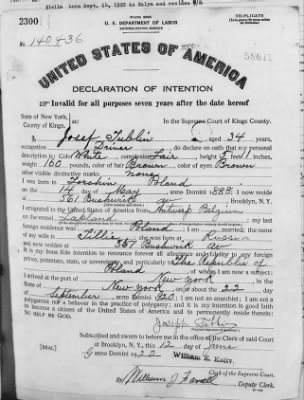 born Sept. 14, 1920 in Bklyn and resides
Form 2203
2300
U. S. DEPARTMENT OF LABOR
NATURALIZATION SERVICE
TRIPLICATE
No. 140436
58612
UNITED STATES OF AMERICA
DECLARATION OF INTENTION
Invalid for all purposes seven years after the date hereof
State of New York,
County of Kings,
ss:
In the Supreme Court of Kings County.
I, Josef Tublin, aged 34 years,
occupation Driver, do declare on oath that my personal
description is: Color White, complexion Fair, height 5 feet 1 inches,
weight 160 pounds, color of hair Brown, color of eyes Brown
other visible distinctive marks none
I was born in Poland
on the 14 day of May, anno Domini 1888; I now reside
at 367 Bushwick av, Brooklyn, N.Y.
I emigrated to the United States of America from Antwerp Belgium
on the vessel Lapland; my last
foreign residence was Poland; I am married; the name
of my wife is Tillie; she was born at Russia
and now resides at 367 Bushwick av
It is my bona fide intention to renounce forever all allegiance and fidelity to any foreign
prince, potentate, state, or sovereignty, and particularly to The Republic of
Poland, of whom I am now a subject;
I arrived at the port of New York, in the
State of New York, on or about the 22 day
of September, anno Domini 1920; I am not an anarchist; I am not a
polygamist nor a believer in the practice of polygamy; and it is my intention in good faith
to become a citizen of the United States of America and to permanently reside therein:
SO HELP ME GOD.
Joseph Tublin
Subscribed and sworn to before me in the office of the Clerk of said Court
at Brooklyn, N. Y., this 12 day of June
anno Domini 1922
[SEAL]
William E. Kelly,
Clerk of the Supreme Court.
By William J. Farrell, Deputy Clerk.